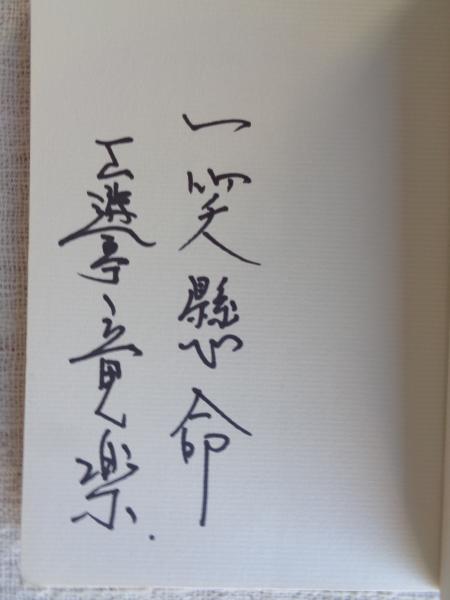 一笑懸命
三遊亭竜楽